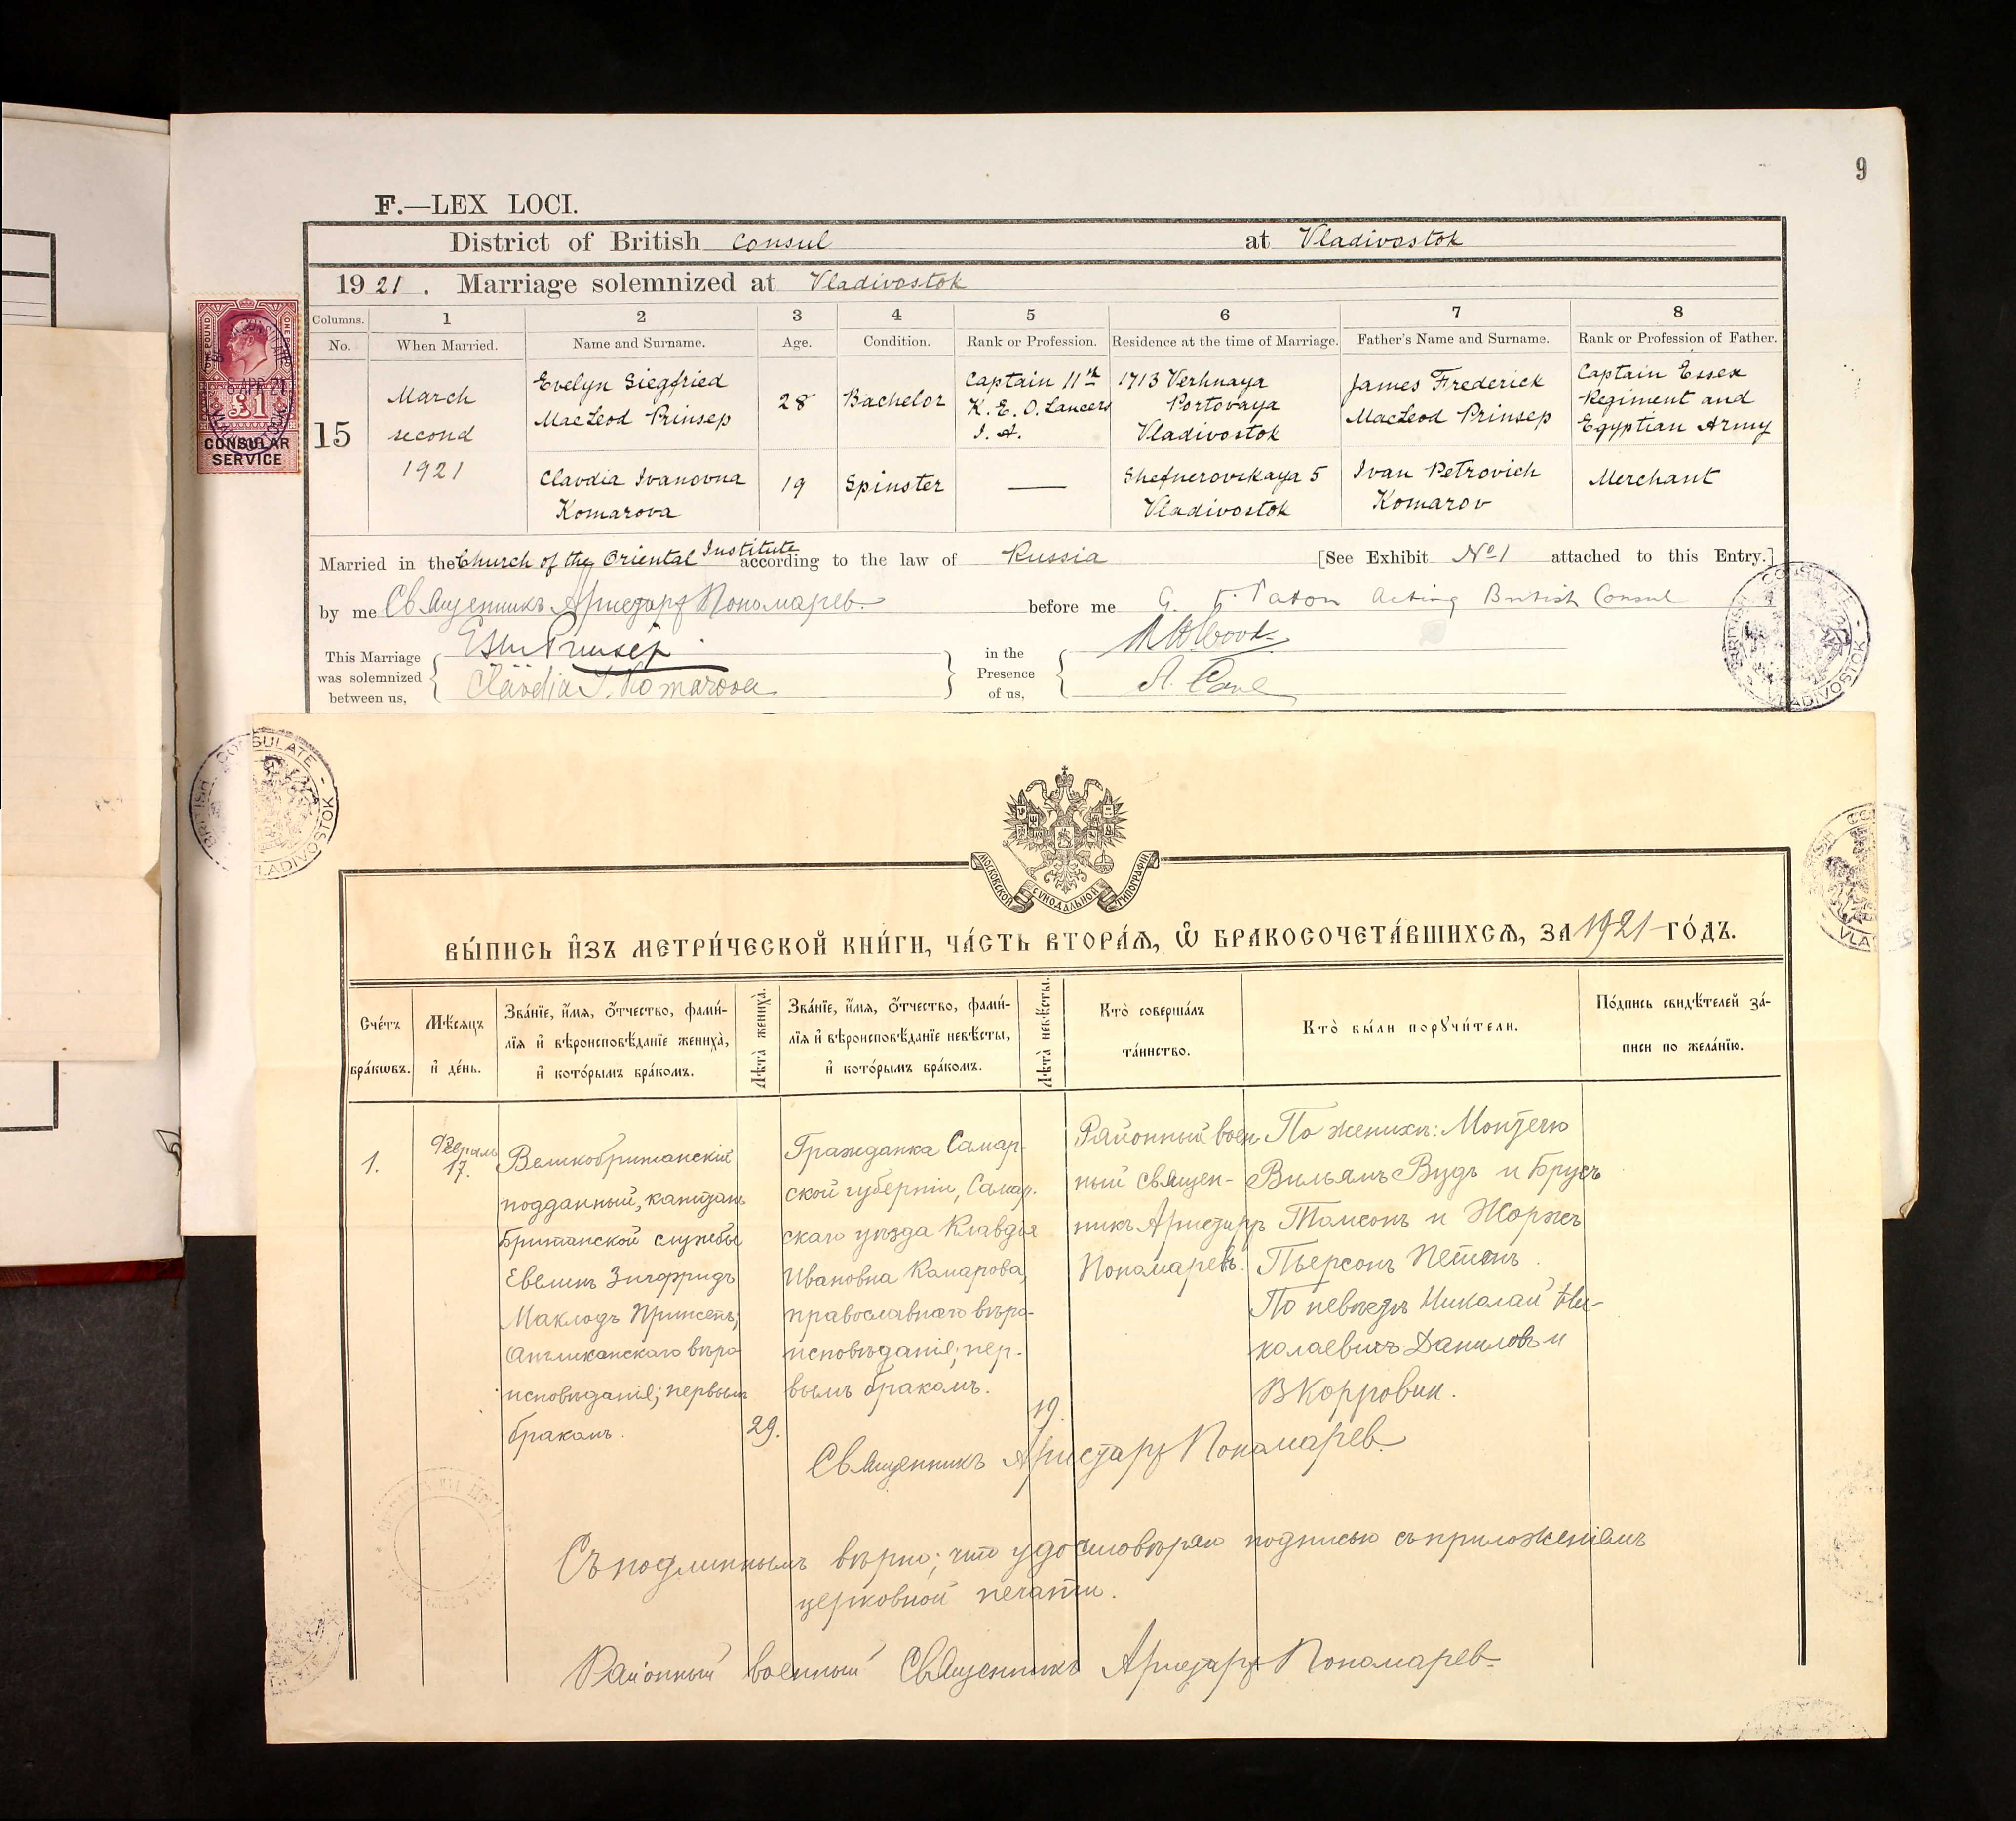 9
F.—LEX LOCI.
District of British Consul at Vladivostok
1921. Marriage solemnized at Vladivostok
Columns. 1 2 3 4 5 6 7 8
No. When Married. Name and Surname. Age. Condition. Rank or Profession. Residence at the time of Marriage. Father's Name and Surname. Rank or Profession of Father.
15
March
second
1921
Evelyn Siegfried
MacLeod Prinsep
28
Bachelor
Captain 11th
K. E. O. Lancers
I. A.
1713 Verhnaya
Portovaya
Vladivostok
James Frederick
MacLeod Prinsep
Captain Essex
Regiment and
Egyptian Army
Clavdia Ivanovna
Komarova
19
Spinster
—
Shefnerovskaya 5
Vladivostok
Ivan Petrovich
Komarov
Merchant
ONE POUND
ONE POUND
6 APR 21
£1
CONSULAR
SERVICE
Married in the Church of the Oriental Institute according to the law of Russia [See Exhibit No 1 attached to this Entry.]
by me Священникъ Аристархъ Пономарев. before me G. P. Paton Acting British Consul
This Marriage
was solemnized
between us,
ESM Prinsep
Clavdia I. Komarova
in the
Presence
of us,
BRITISH CONSULATE - VLADIVOSTOK
BRITISH CONSULATE - VLADIVOSTOK
МОСКОВСКОЙ СѴНОДАЛЬНОЙ ТИПОГРАФІИ
ВЫ́ПИСЬ И҆ЗЪ МЕТРИ́ЧЕСКОЙ КНИ́ГИ, ЧА́СТЬ ВТОРА́Ѧ, Ѡ҆ БРАКОСОЧЕТА́ВШИХСѦ, ЗА 1921 ГО́ДЪ.
Сче́тъ
бра́кѡвъ.
Мѣ́сяцъ
и҆ де́нь.
Зва́нїе, и҆́мѧ, ѻ҆́тчество, фами́-
лїѧ и҆ вѣроисповѣ́данїе жениха̀,
и҆ кото́рымъ бра́комъ.
Лѣ́та̀ жениха̀.
Зва́нїе, и҆́мѧ, ѻ҆́тчество, фами́-
лїѧ и҆ вѣроисповѣ́данїе невѣ́сты,
и҆ кото́рымъ бра́комъ.
Лѣ́та̀ невѣ́сты.
Кто̀ соверша́лъ
та́инство.
Кто̀ бы́ли порꙋчи́тели.
По́дпись свидѣ́телей за́-
писи по жела́нїю.
1.
Февраль
17.
Великобританскій
подданный, капитанъ
Британской службы
Евелинъ Зигфридъ
Маклодъ Принсепъ;
Англиканскаго вѣро
исповѣданія; первымъ
бракомъ.
29.
Гражданка Самар-
ской губерніи, Самар.
скаго уѣзда Клавдія
Ивановна Комарова,
православнаго вѣро-
исповѣданія; пер-
вымъ бракомъ.
19.
Районный воен
ный священ-
никъ Аристархъ
Пономаревъ.
По женихѣ: Монтегю
Вильямъ Вудъ и Брусъ
Томсонъ и Жоржъ
Пьерсонъ Петонъ.
По невѣстѣ Николай Ни-
колаевичъ Даниловъ и
Священникъ Аристархъ Пономарев.
Съ подлиннымъ вѣрно; что удостовѣряю подписью съ приложеніемъ
церковной печати.
Районный военный Священникъ Аристархъ Пономарев